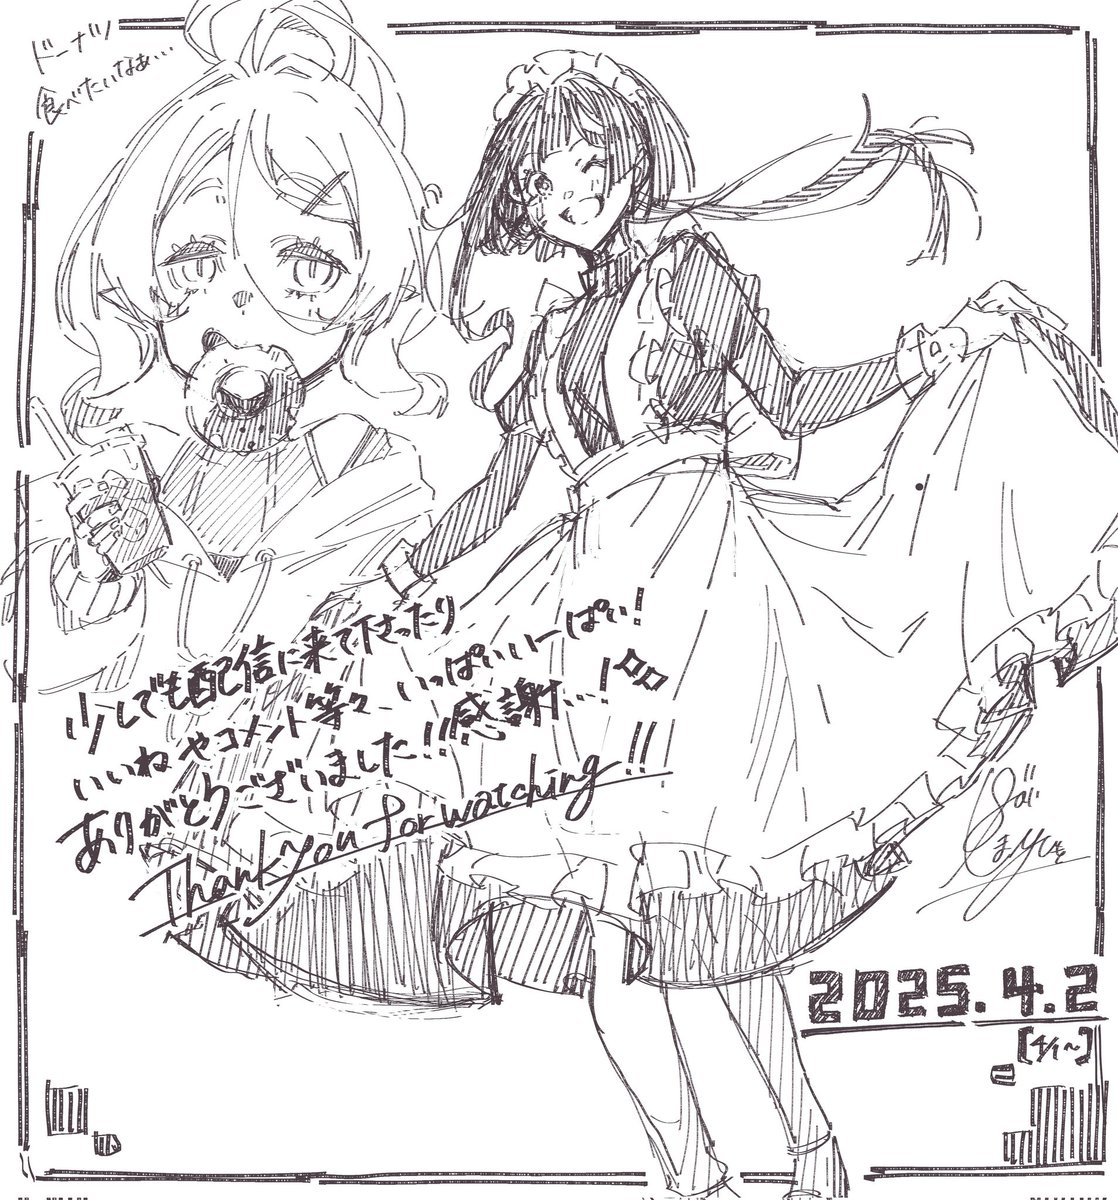 ドーナツ
食べたいなぁ…
少しでも配信に来て下さったり
いいねやコメント等々…いっぱいいーっぱい!
ありがとうございました!!感謝…!
Thank you for watching!!
2025.4.2
[4/1~]